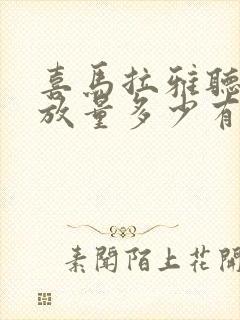 喜馬拉雅聽
放量多少有
素聞陌上花開